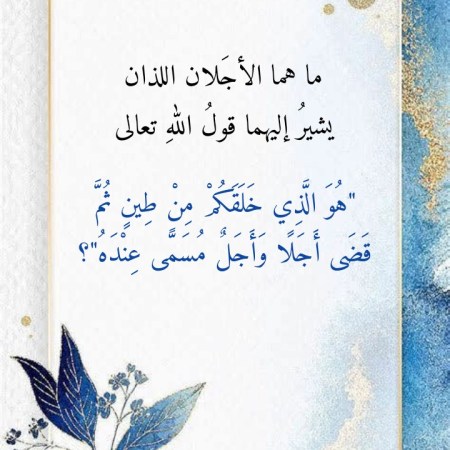 ما هما الأجَلان اللذان
يشيرُ إليهما قولُ اللهِ تعالى
"هُوَ الَّذِي خَلَقَكُمْ مِنْ طِينٍ ثُمَّ
قَضَى أَجَلًا وَأَجَلٌ مُسَمًّى عِنْدَهُ"؟